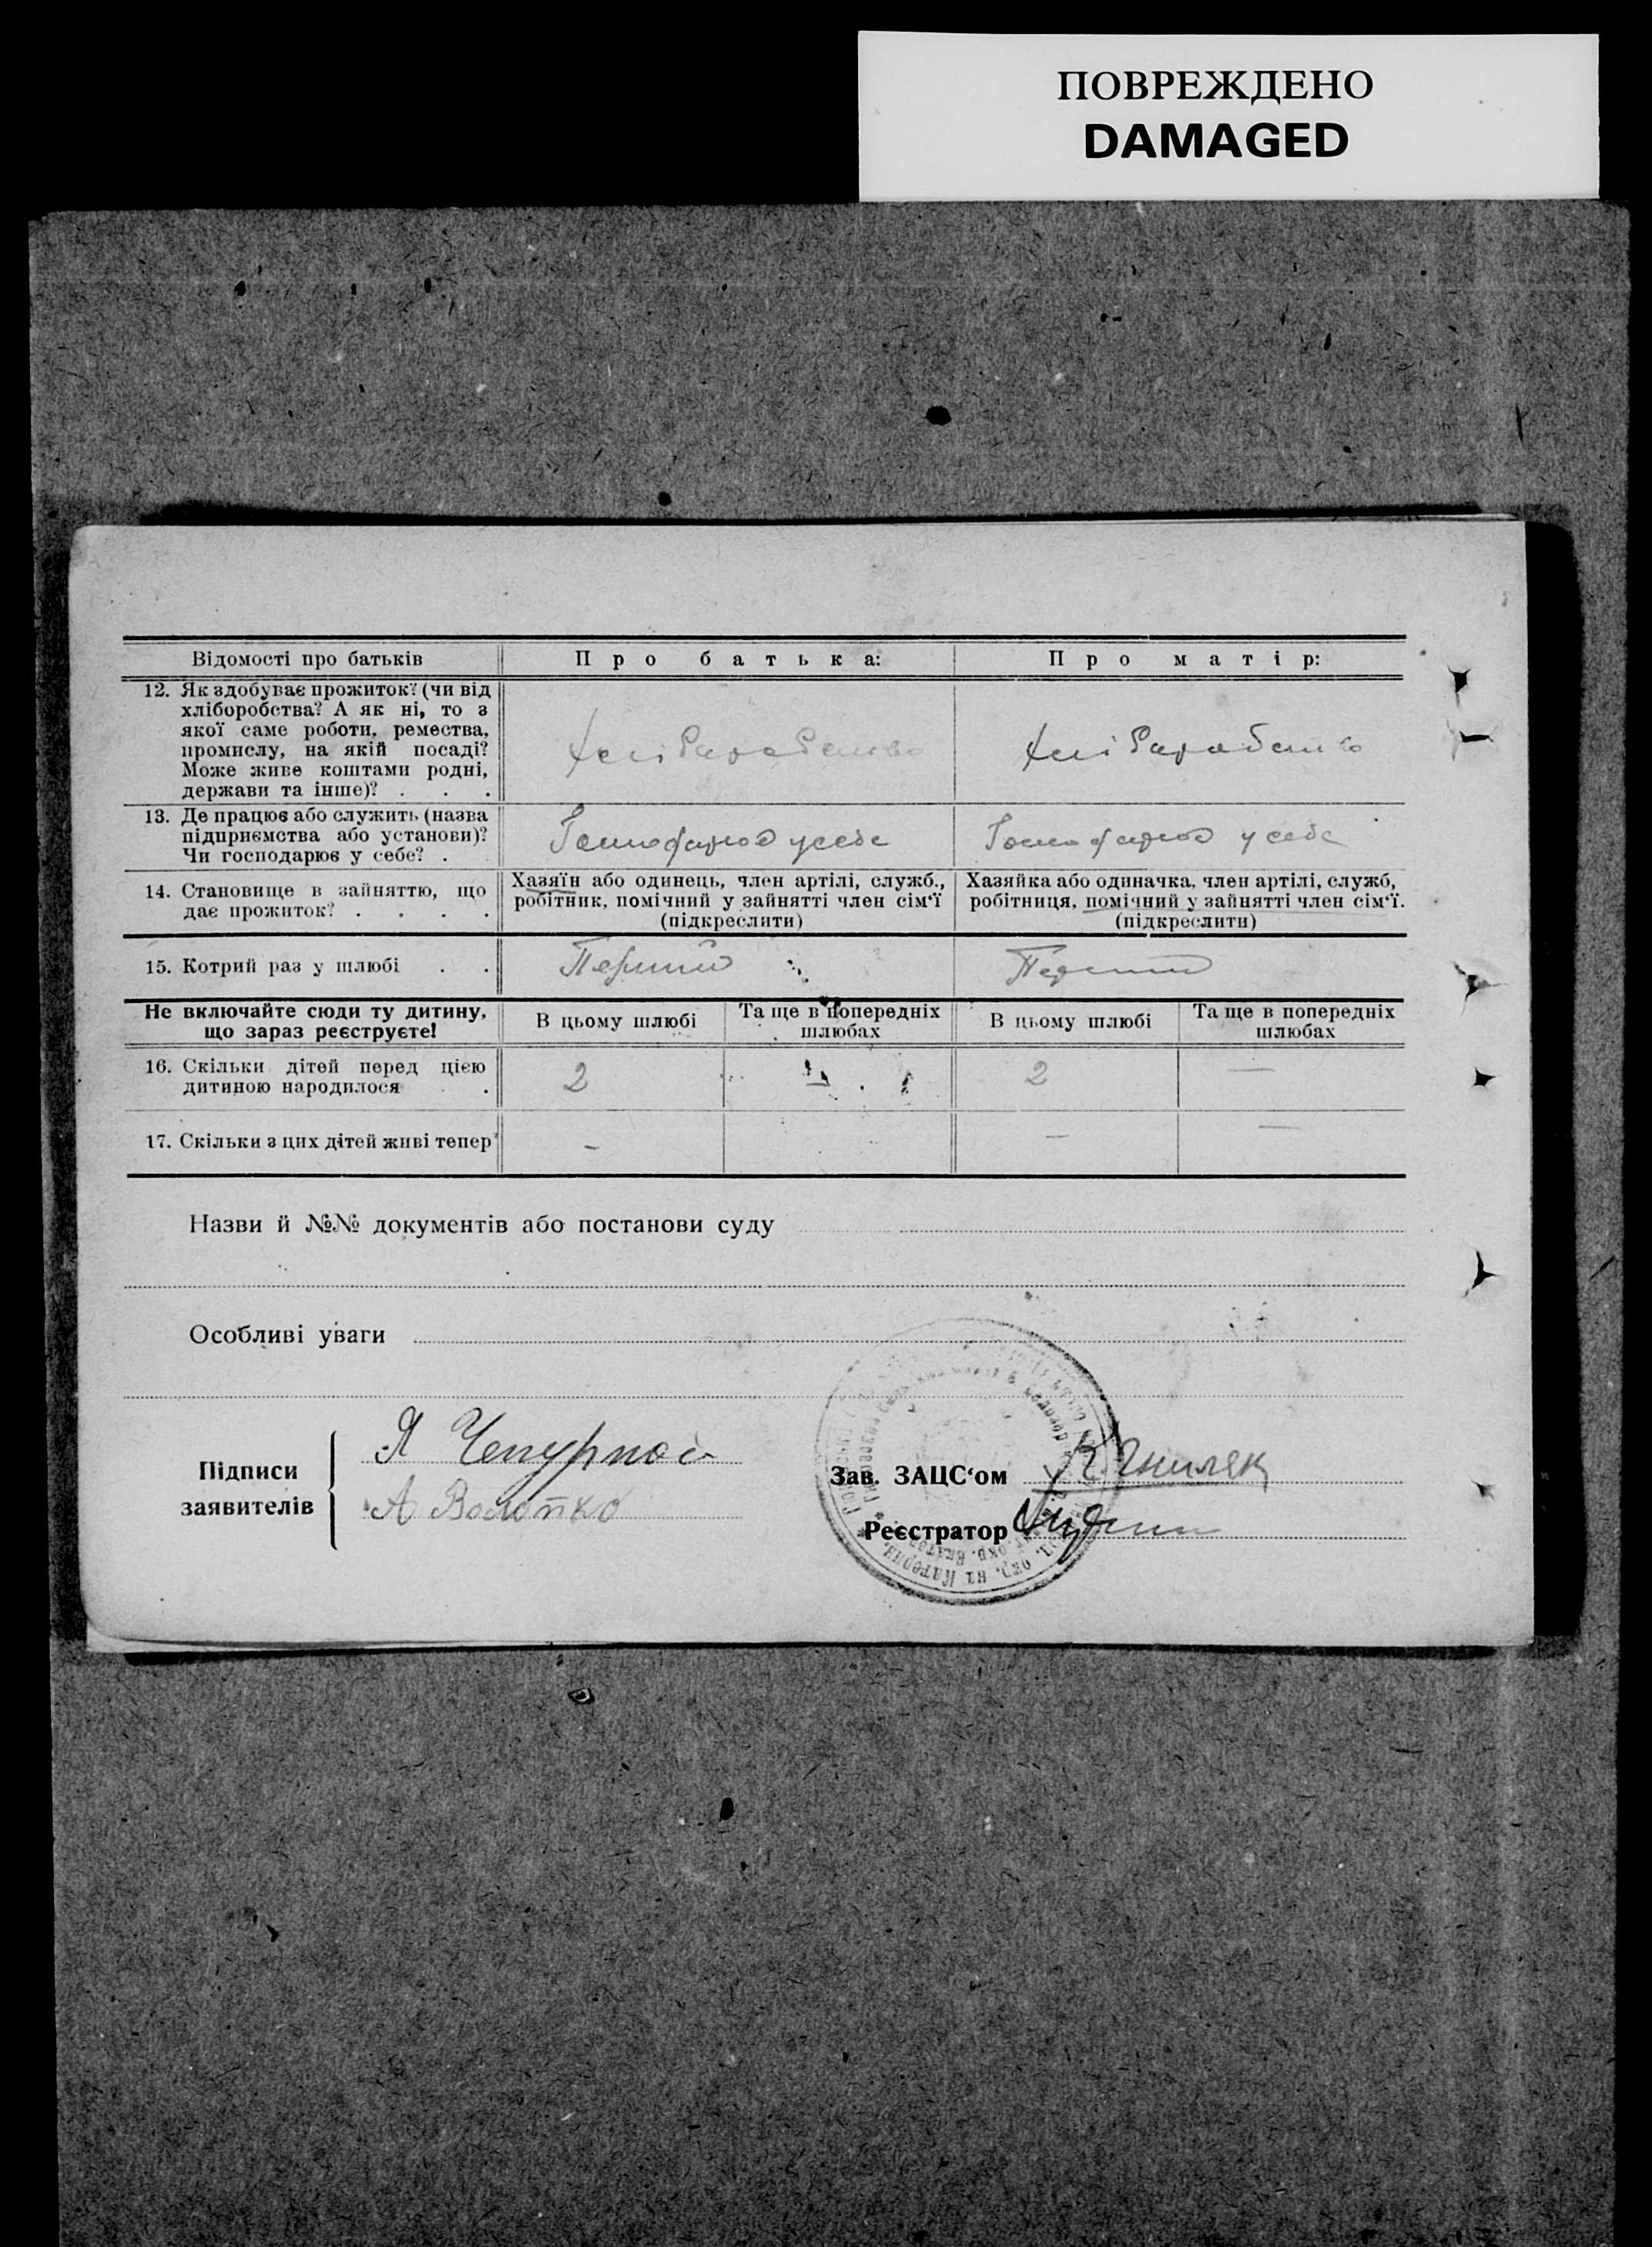 ПОВРЕЖДЕНО
DAMAGED
Відомості про батьків
Про батька:
Про матір:
12. Як здобуває прожиток? (чи від
хліборобства? А як ні, то з
якої саме роботи, ремества,
промислу, на якій посаді?
Може живе коштами родні,
держави та інше)? . . .
13. Де працює або служить (назва
підприємства або установи)?
Чи господарює у себе? .
у себе
у себе
14. Становище в зайняттю, що
дає прожиток? . . . .
Хазяїн або одинець, член артілі, служб.,
робітник, помічний у зайнятті член сім'ї
(підкреслити)
Хазяйка або одиначка, член артілі, служб,
робітниця, помічний у зайнятті член сім'ї.
(підкреслити)
15. Котрий раз у шлюбі . .
Не включайте сюди ту дитину,
що зараз реєструєте!
В цьому шлюбі
Та ще в попередніх
шлюбах
В цьому шлюбі
Та ще в попередніх
шлюбах
16. Скільки дітей перед цією
дитиною народилося .
2
—
2
—
17. Скільки з цих дітей живі тепер
-
—
—
Назви й №№ документів або постанови суду
Особливі уваги
Підписи
заявителів
Я Чепурной
А Волошко
Зав. ЗАЦС'ом
Реєстратор